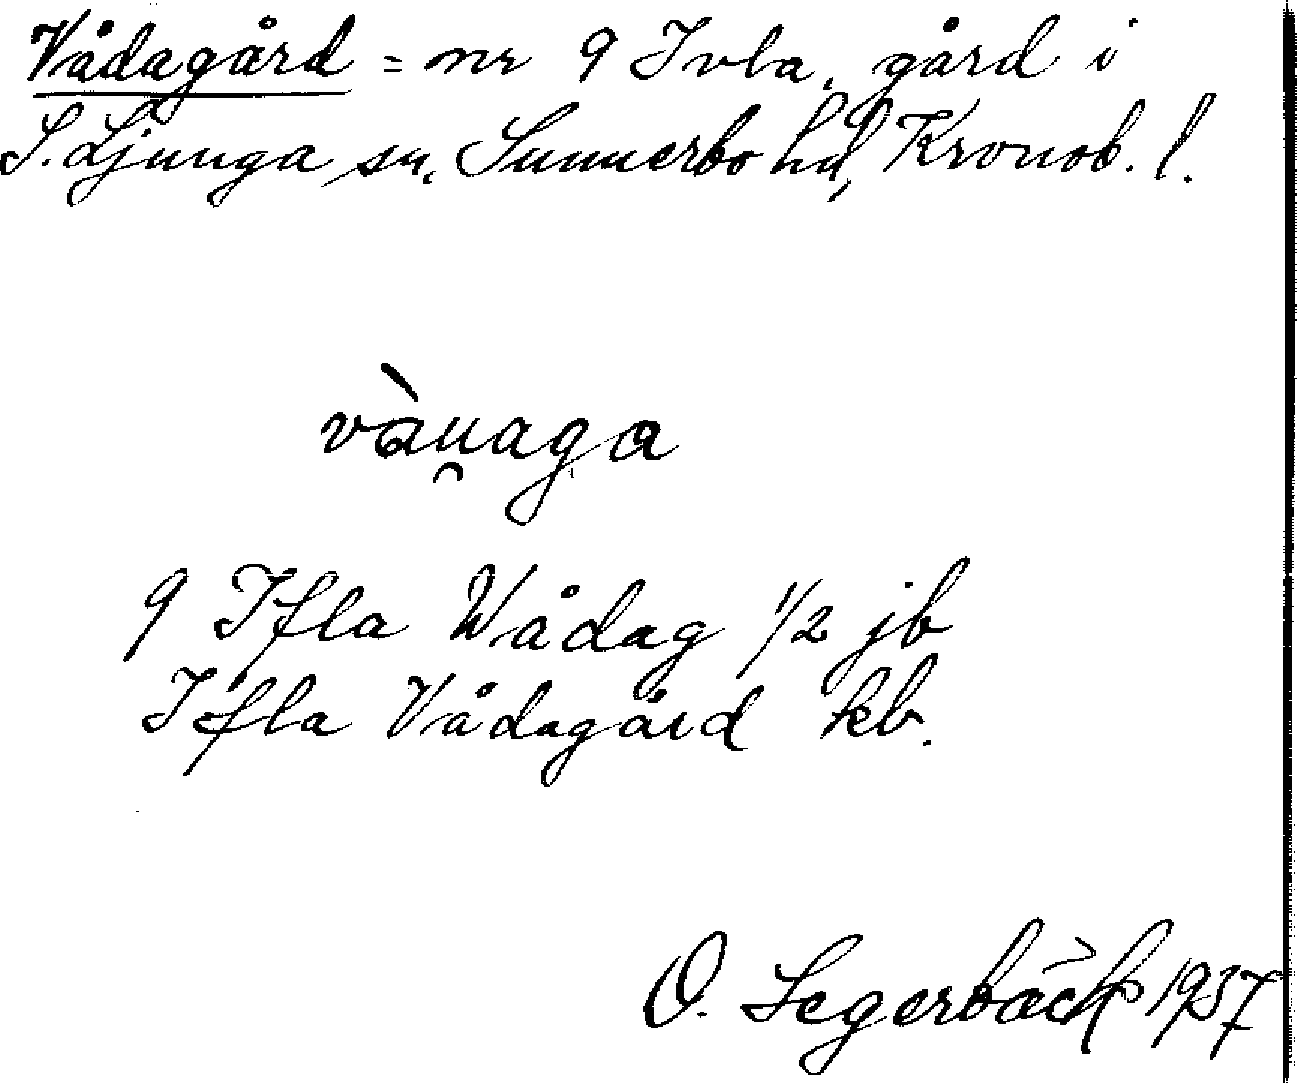 Vådagård = nr 9 Ivla, gård i
S. Ljunga sn, Sunnerbo hd, Kronob. l.
vàu̯aga
9 Ifla Wådag 1/2 jb
Ifla Vådagård kb.
O. Segerbäck 1937